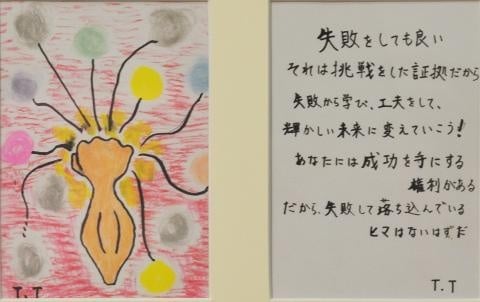 失敗をしても良い
それは挑戦をした証拠だから
失敗から学び、工夫をして、
輝かしい未来に変えていこう!
あなたには成功を手にする
権利がある
だから、失敗して落ち込んでいる
ヒマはないはずだ
T.T
T.T